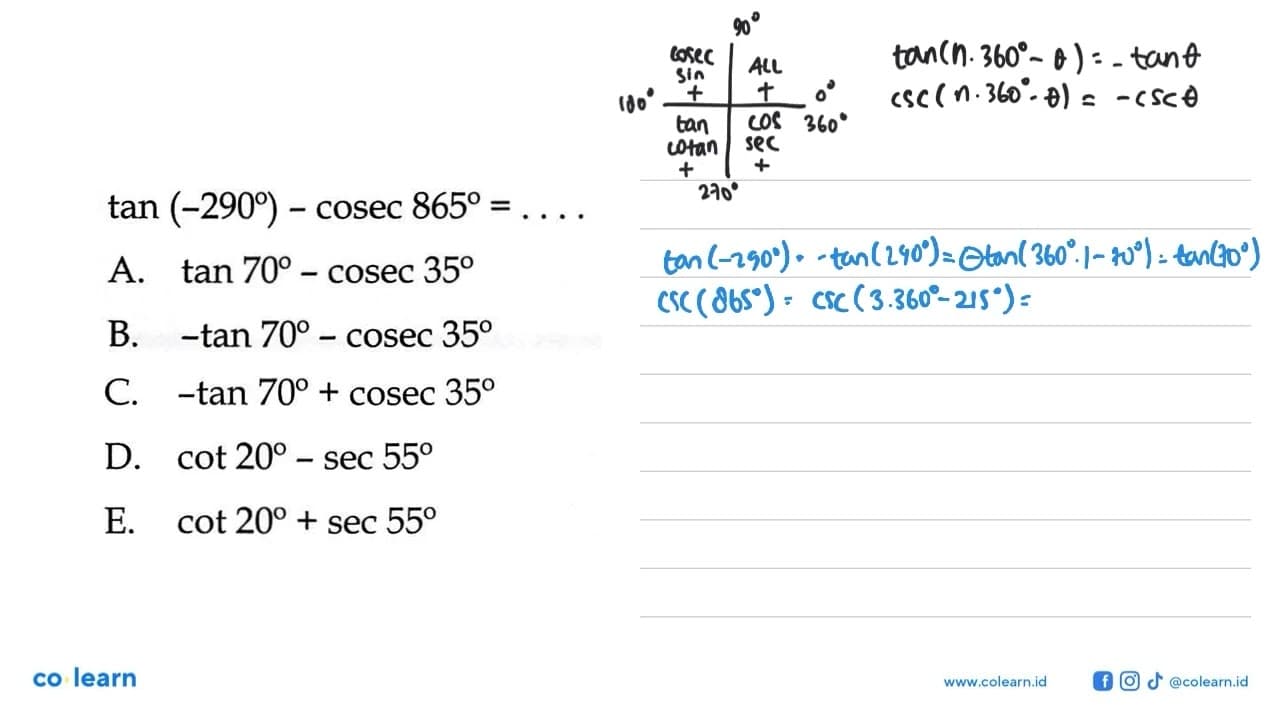 90°
cosec sin + ALL +
180° 0° 360°
tan cotan + cos sec +
270°
tan(n.360° - θ) = - tan θ
csc(n.360° - θ) = -csc θ
tan (–290°) – cosec 865° = . . . .
A. tan 70° – cosec 35°
B. –tan 70° – cosec 35°
C. –tan 70° + cosec 35°
D. cot 20° – sec 55°
E. cot 20° + sec 55°
tan(-290°) = -tan(290°) = - tan(360°.1 - 70°) = tan(70°)
csc(865°) = csc(3.360° - 215°) =
co learn
www.colearn.id
@colearn.id